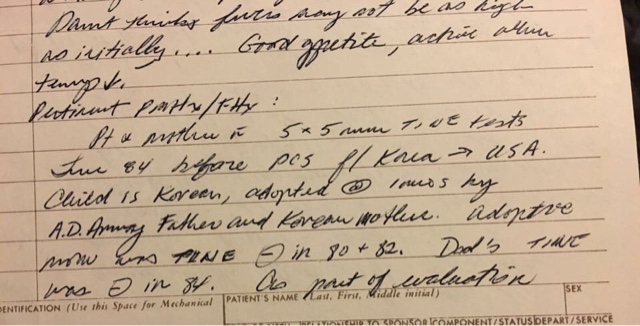 Parent thinks fevers may not be as high
as initially.... Good appetite, active when
temp ↓.
Pertinent PMHx/FHx :
Pt & mother c̄ 5 x 5 mm TINE tests
June 84 before PCS f/ Korea → USA.
Child is Korean, adopted @ 10mos by
A.D. Army Father and Korean mother. Adoptive
mom was TINE ⊖ in 80 + 82. Dad's TINE
was ⊖ in 84. As part of evaluation
IDENTIFICATION (Use this Space for Mechanical
PATIENT'S NAME (Last, First, Middle initial)
SEX
RELATIONSHIP TO SPONSOR
COMPONENT/STATUS
DEPART/SERVICE